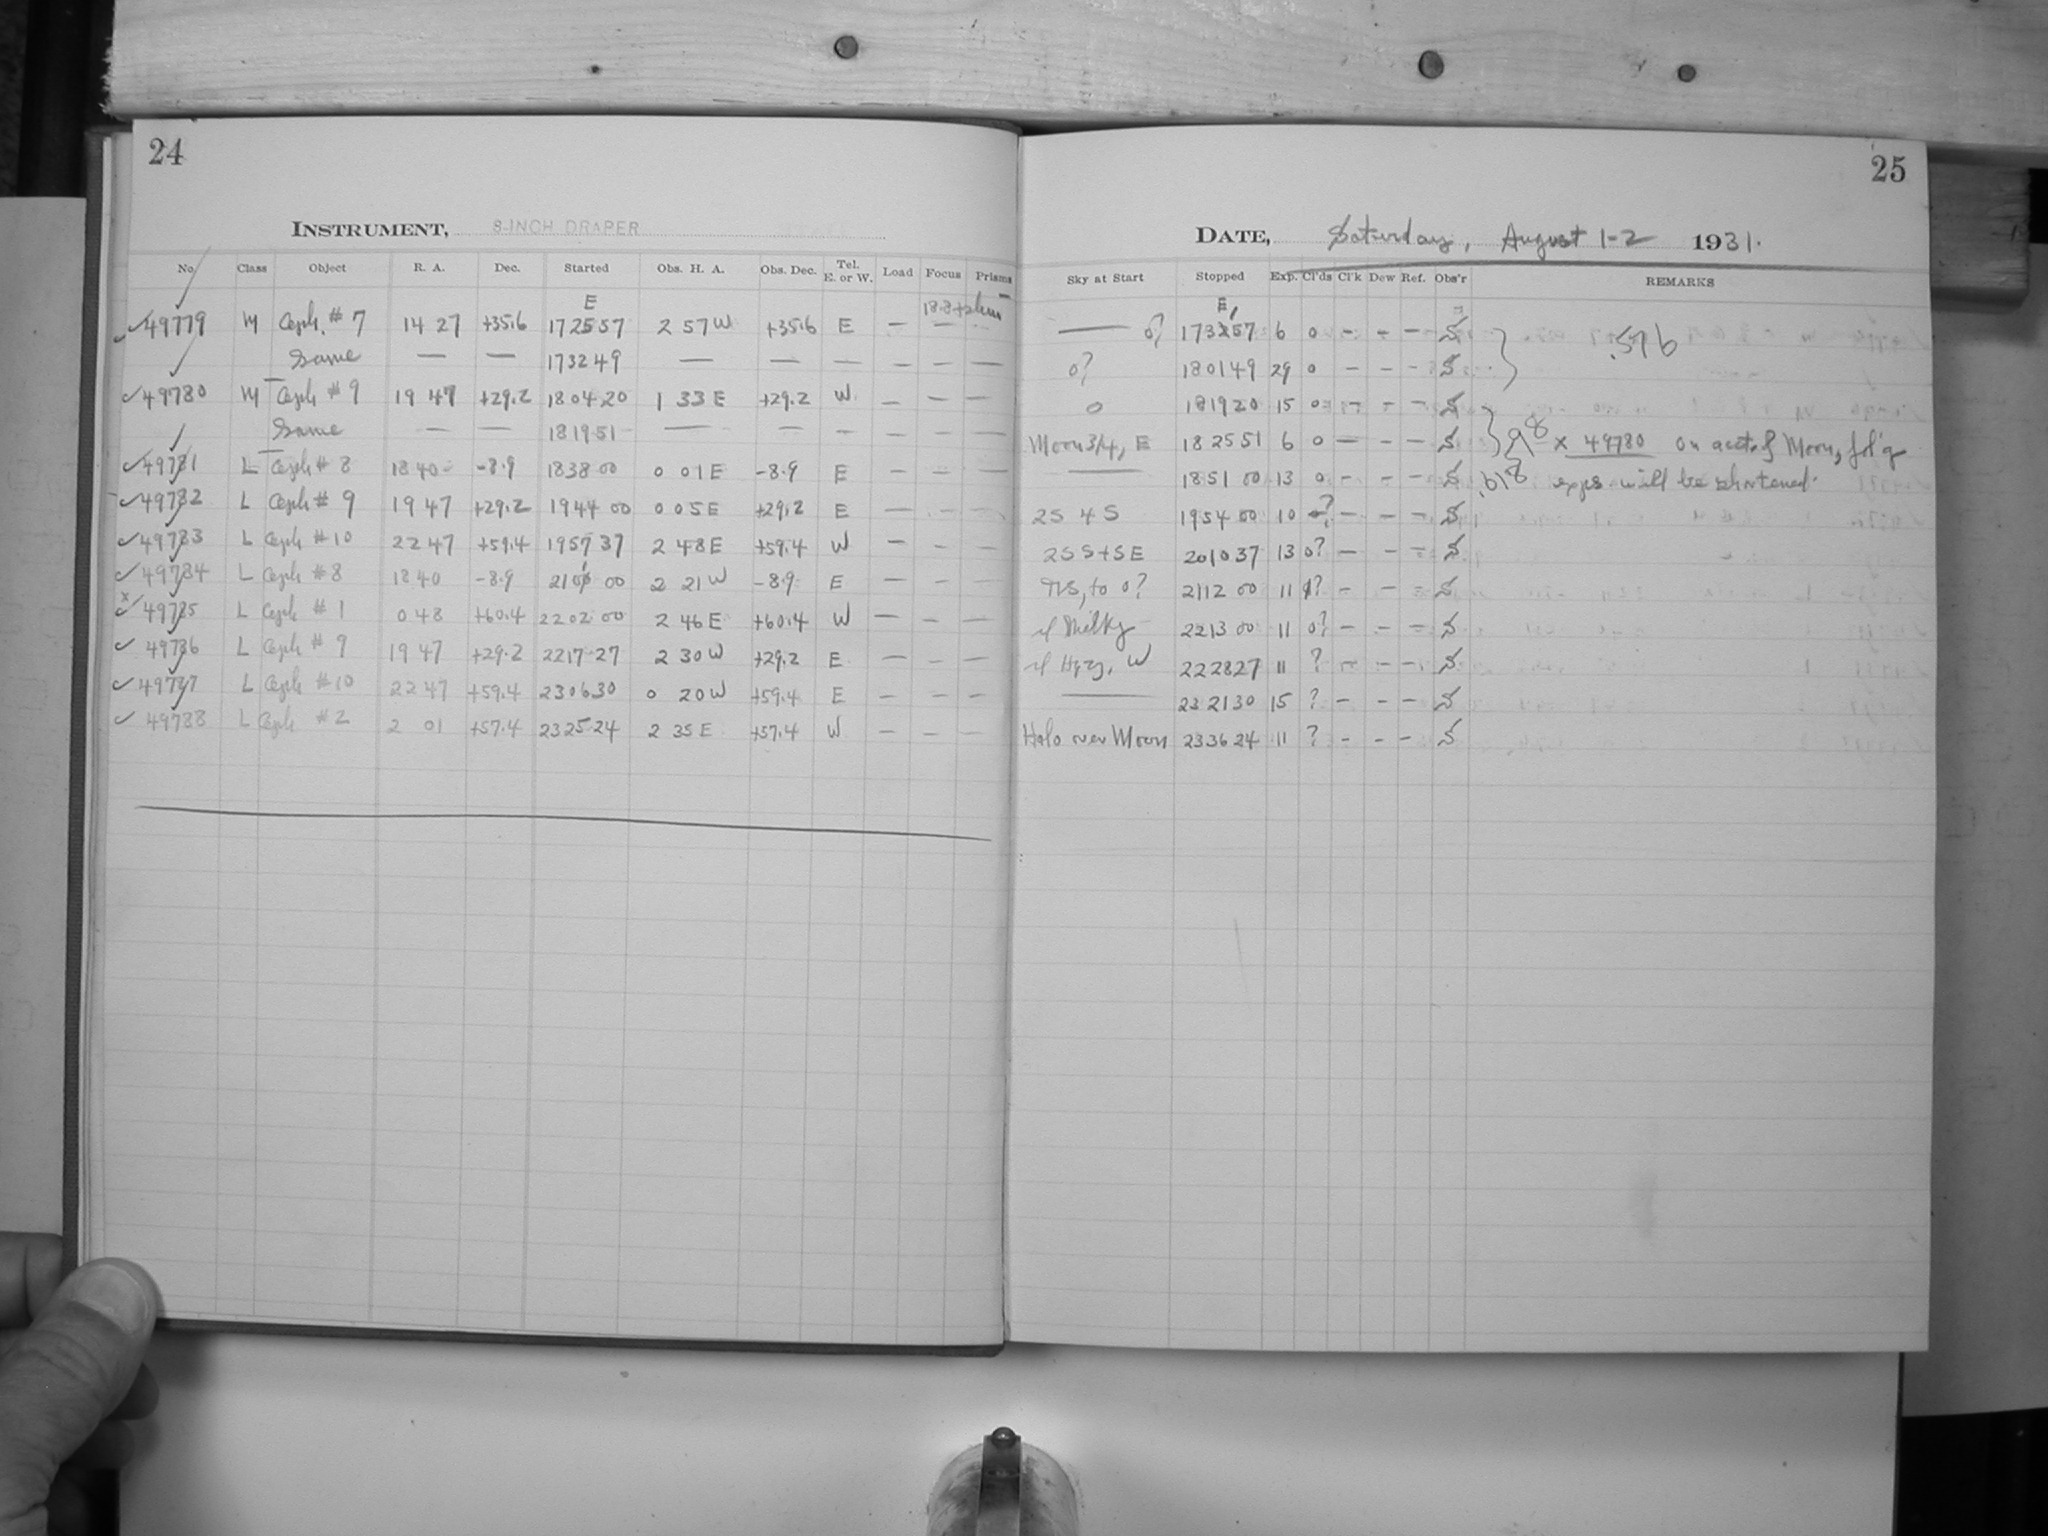 24
INSTRUMENT, 8-INCH DRAPER
No. Class Object R. A. Dec. Started Obs. H. A. Obs. Dec. Tel. E. or W. Load Focus Prisms
E 18.8+
49779 M Ceph. # 7 14 27 +35.6 17 25 57 2 57 W +35.6 E — — —
Same — — 17 32 49 — — — — — —
49780 M Ceph # 9 19 47 +29.2 18 04 20 1 33 E +29.2 W — — —
Same — — 18 19 51 — — — — — —
49781 L Ceph # 8 18 40 -8.9 18 38 00 0 01 E -8.9 E — — —
49782 L Ceph # 9 19 47 +29.2 19 44 00 0 05 E +29.2 E — — —
49783 L Ceph # 10 22 47 +59.4 19 57 37 2 48 E +59.4 W — — —
49784 L Ceph # 8 18 40 -8.9 21 01 00 2 21 W -8.9 E — — —
x 49785 L Ceph # 1 0 48 +60.4 22 02 00 2 46 E +60.4 W — — —
49786 L Ceph # 9 19 47 +29.2 22 17 27 2 30 W +29.2 E — — —
49787 L Ceph # 10 22 47 +59.4 23 06 30 0 20 W +59.4 E — — —
49788 L Ceph # 2 2 01 +57.4 23 25 24 2 35 E +57.4 W — — —
25
DATE, Saturday, August 1-2 1931.
Sky at Start Stopped Exp. Cl'ds Cl'k Dew Ref. Obs'r REMARKS
E,
— 0? 17 32 57 6 0 — — — S .596
0? 18 01 49 29 0 — — — S
0 18 19 20 15 0 — — — S
Moon 3/4, E 18 25 51 6 0 — — — S x 49780 on acct. of Moon, fol'g
— 18 51 00 13 0 — — — S .618 exps will be shortened.
2S 4 S 19 54 00 10 ? — — — S
2S S+SE 20 10 37 13 0? — — — S
to 0? 21 12 00 11 ? — — — S
Milky 22 13 00 11 0? — — — S
Hazy, W 22 28 27 11 ? — — — S
— 23 21 30 15 ? — — — S
Halo over Moon 23 36 24 11 ? — — — S